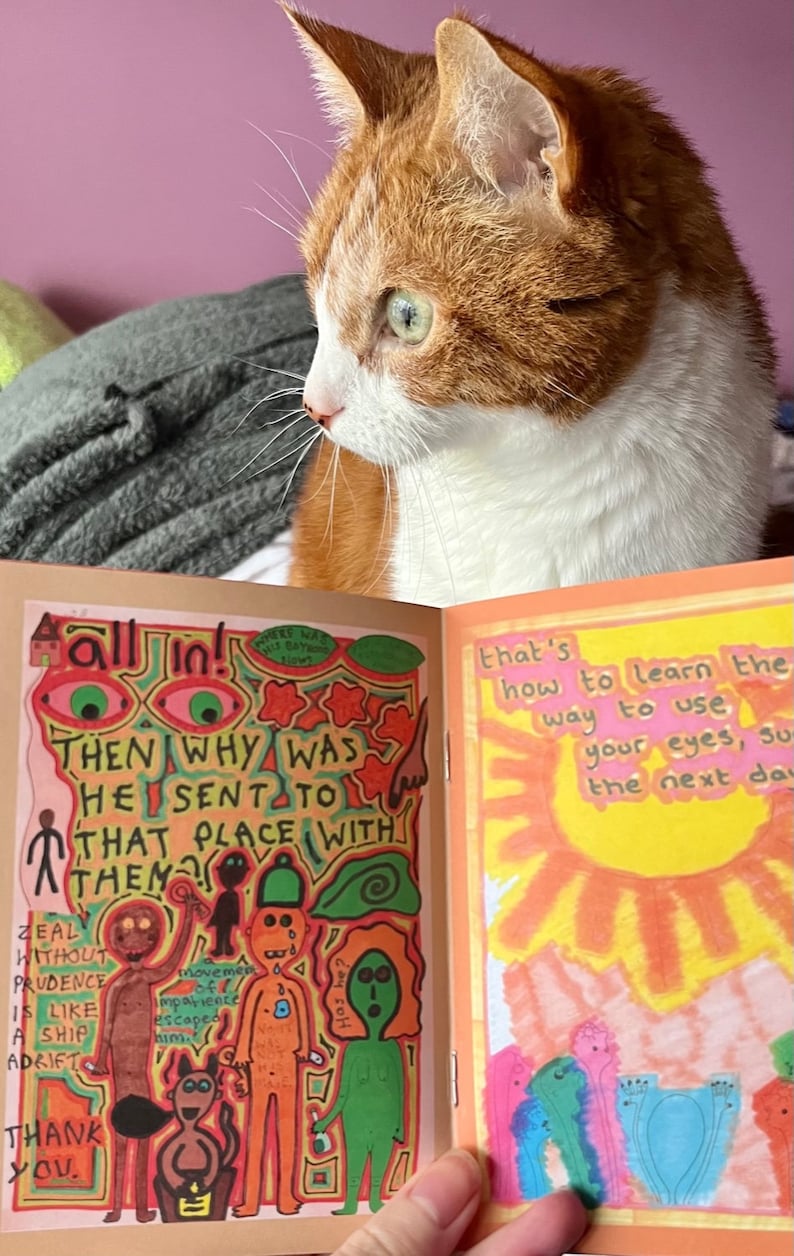 all in!
WHERE WAS
HIS BOYHOOD
NOW?
THEN WHY WAS
HE SENT TO
THAT PLACE WITH
THEM?
ZEAL
WITHOUT
PRUDENCE
IS LIKE
A SHIP
ADRIFT.
a
movement
of
impatience
escaped
him.
Has he?
NO IT
WAS
NOT
HIS
THANK
YOU.
that's
how to learn the
way to use
your eyes,
the next